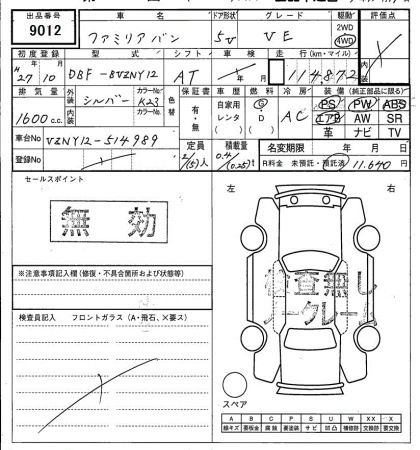 出品番号 車名 ドア形状 グレード 駆動 評価点
9012 ファミリアバン 5V VE 2WD 4WD
初度登録 型式 シフト 車検 走行(km・マイル)
27年10月 DBF-BVZNY12 AT 年 月 114,872
排気量 外装 シルバー カラーNo K23 色替 保証書 車歴 燃料 冷房 装備(純正部品に限る)
1600cc. 内装 カラーNo 有・無 自家用 レンタ G D AC PS PW ABS
エアB AW SR
革 ナビ TV
車台No VZNY12-514989 定員 2/(5)人 積載量 0.4/(0.25)t 名変期限 年 月 日
登録No R料金 未預託・預託済 11,640円
セールスポイント 左 右
無効
検査無し
ノークレーム
※注意事項記入欄(修復・不具合箇所および状態等)
検査員記入 フロントガラス(A・飛石、×要ス)
スペア
A B C P S U W XX X
線キズ 要板金 腐蝕 要塗装 サビ 凹凸 補修跡 交換跡 要交換